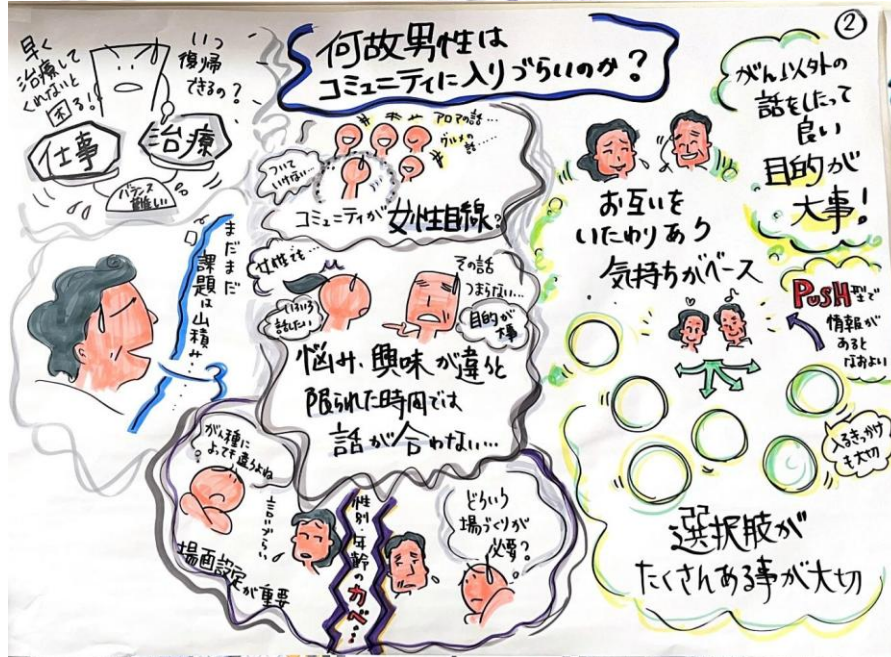 ②
何故男性は
コミュニティに入りづらいのか?
早く
治療して
くれないと
困る!!
いつ
復帰
できるの?
仕事
治療
バランス
難しい
まだまだ
課題は山積み…
アロマの話…
グルメの
話…
ついて
いけない…
コミュニティが女性目線?
女性でも…
いろいろ
話したい
その話
つまらない…
目的が
大事
悩み、興味が違うと
限られた時間では
話が合わない…
がん種に
よっても違うよね
言いづらい
場面設定が重要
性別・年齢のカベ…
どういう
場づくりが
必要?
がん以外の
話をしたって
良い
目的が
大事!
お互いを
いたわりあう
気持ちがベース
PUSH型で
情報が
あると
なおよい
入るきっかけ
も大切
選択肢が
たくさんある事が大切